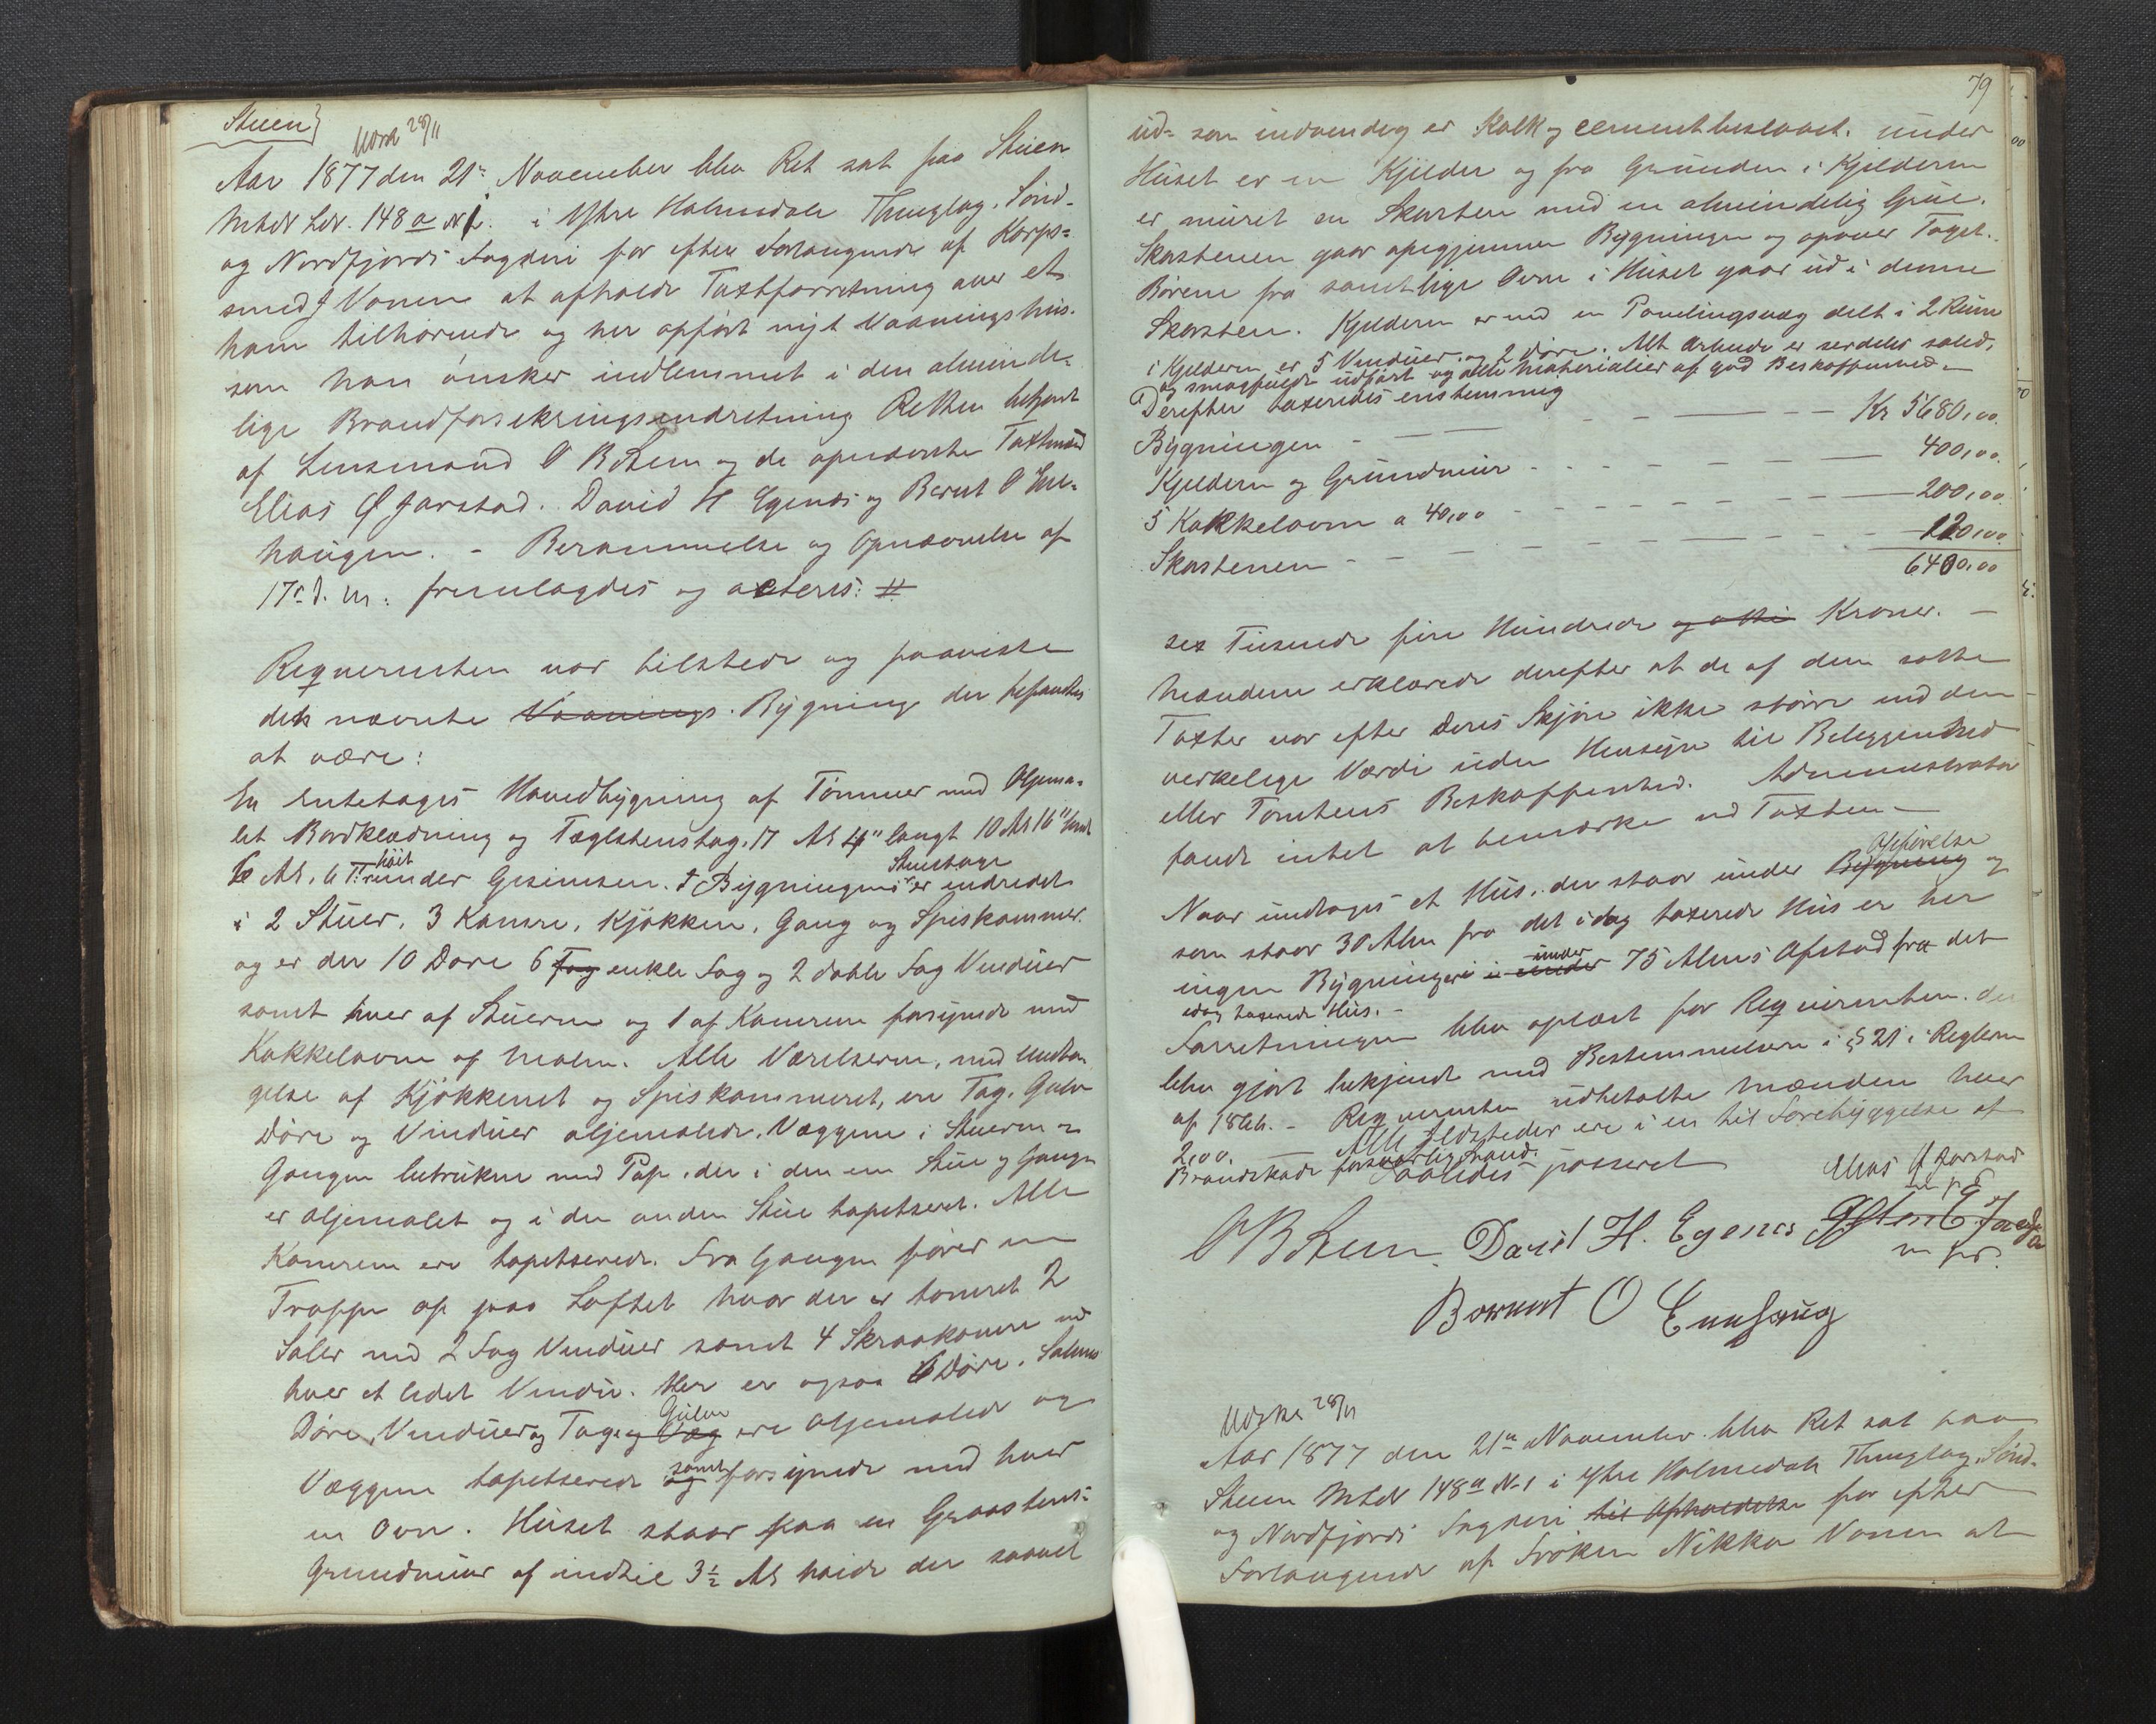 Stuen}
Udsk 28/11
Aar 1877 den 21de November blev Ret sat paa Stuen
Mtdr Ldr. 148a N 1. i Ythre Holmedals Thinglag, Sønd-
og Nordfjords Fogderi for efter Forlangende af Korps-
smed J Vonen at afholde Taxtforretning over et
ham tilhørende og her opført nyt Vaaningshus.
som han ønsker indlemmet i den alminde-
lige Brandforsikringsindretning Retten betjent
af Lensmand O B Stuen og de opnævnte Taxtmænd
Elias Ø Jarstad. David H Egenæs og Bernt O Ene-
haugen. - Berammelse og Opnævnelse af
17de d. M. fremlagdes og acteres: #
Reqverenten var tilstede og paaviste
det nævnte Vaanings. Bygning der befandtes
at være:
En entetages Hovedbygning af Tømmer med Oljema-
let Bordklædning og Taglstenstag, 17 Al 4" langt 10 Al 16" bredt
høit
6 Al. 6 T. under Gesimsen. I Bygningens er indredet
1ste Etage
i 2 Stuer, 3 Kamre, Kjøkken, Gang og Spiskammer.
og er der 10 Døre 6 Fag enkle Fag og 2 doble Fag Vinduer
samt hver af Stuerne og 1 af Kamrene forsynede med
Kakkelovne af Malm. Alle Værelserne, med Undta-
gelse af Kjøkkenet og Spiskammeret, ere Tag, Gulv
Døre og Vinduer oljemalede. Væggene i Stuerne og
Gangen betrukne med Pap, der i den ene Stue og Gangen
er oljemalet og i den anden Stue tapetseret. Alle
Kamrene ere tapetserede. Fra Gangen fører en
Trappe op paa Loftet hvor der er tømret 2
Saler med 2 Fag Vinduer samt 4 Skraakamre med
hver et lidet Vindu. Her er ogsaa 6 Døre. Salenes
Gulve
Døre, Vinduer og Tage og Væg ere oljemalede og
Væggene tapetserede og samt forsynede med hver
en Ovn. Huset staar paa en Graastens-
Grundmuur af indtil 3½ Al høide der saavel
79
ud- som indvendig er kalk og cementbeslaaet. Under
Huset er en Kjelder og fra Grunden i Kjelderen
er muret en Skorsten med en almindelig Grue.
Skorstenen gaar opigjennem Bygningen og opover Taget.
Rørene fra samtlige Ovne i Huset gaar ud i denne
Skorsten. Kjelderen er ved en Panelingsvæg delt i 2 Rum
i Kjelderen er 5 Vinduer og 2 Døre. Alt Arbeide er serdeles solid,
og smagfuldt udført og alle Materialier af god Beskaffenhed. -
Derefter taxeredes enstemmig
Bygningen - - - - Kr 5680,00.
Kjelderen og Grundmuur - - - - 400,00.
5 Kakkelovne a 40,00 - - - - 200,00
Skorstenen - - - - 120,00.
6400,00
sex Tusende fire Hundrede og otti Kroner. -
Mændene erklærede derefter at de af dem satte
Taxter var efter deres Skjøn ikke større end den
verkelige Værdi uden Hensyn til Beliggenhed
eller Tomtens Beskaffenhed. Administrator
fandt intet at bemærke ved Taxten -
Opførelse
Naar undtages et Hus, der staar under Bygning og
som staar 30 Alen fra det idag taxerede Hus er her
ingen Bygninger i under under 75 Alens Afstand fra det
idag taxerede Hus. -
Forretningen blev oplæst for Reqvirenten. der
blev gjort bekjendt med Bestemmelserne i § 21 i Reglerne
af 1866. - Reqverenten udbetalte Mændene hver
2,00. - Alle Ildsteder ere i en til Forebyggelse af
Brandskade forsvarlig Stand.
Saaledes passeret
Elias Ø Jarstad
m p P
O B Stuen. David H. Egenes
m p P.
Bernt O Enehaug
Udskr 28/11
Aar 1877 den 21de November blev Ret sat paa
Stuen Mtdr 148a N-1 i Ythre Holmedals Thinglag, Sønd-
og Nordfjords Fogderi til Afholdelse for efter
Forlangende af Frøken Nikka Vonen at